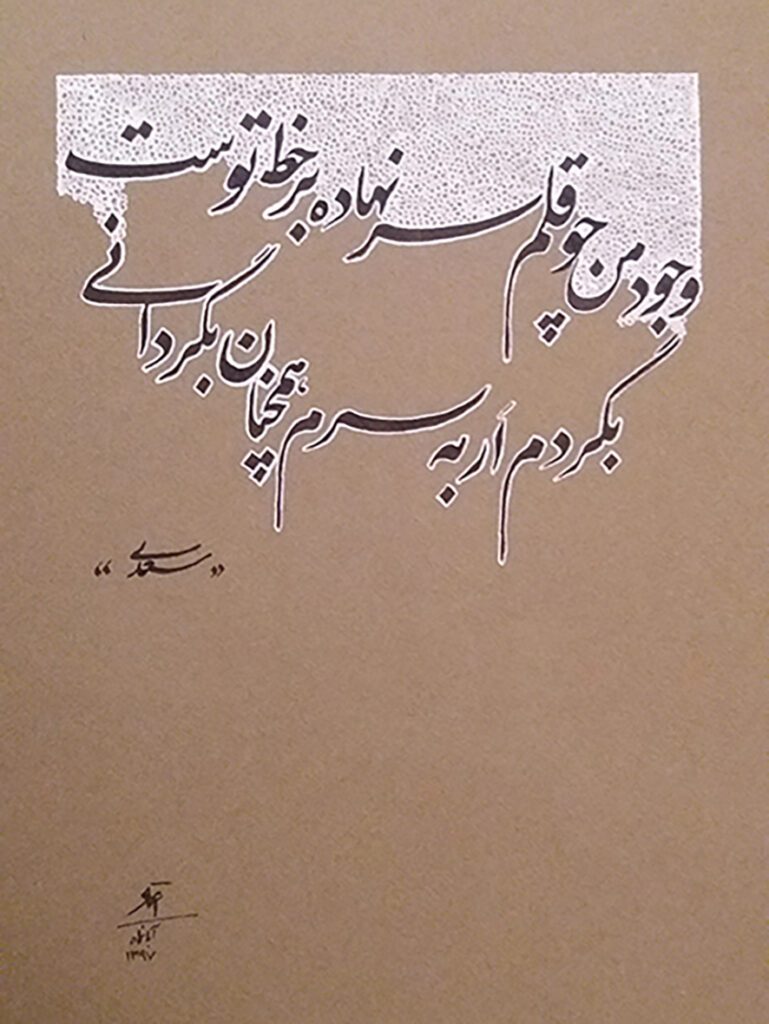 وجود من چو قلم سر نهاده بر خط توست
بگردم ار به سرم همچنان بگردانی
«سعدی»
آبانماه
۱۳۹۷